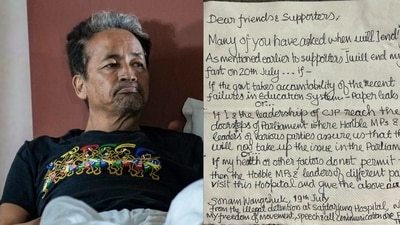 Dear friends & Supporters,
Many of you have asked when will I end
As mentioned earlier to supporters I will end m
fast on 20th July .... if -
If the govt takes accountability of the recent
failures in Education System - Paper leaks
or...
If I & the leadership of CJP reach the
doorsteps of Parliament where Hon'ble MPs &
leaders of various parties assure us that th
will take up the issue in the Parliam
If my health or other factors do not permit
then the Hon'ble MPs & leaders of different pa
visit this Hospital and give the above a
Sonam Wangchuk, 19th July
From the illegal detention at Safdarjung Hospital, w
my freedom of movement, speech & all communication are